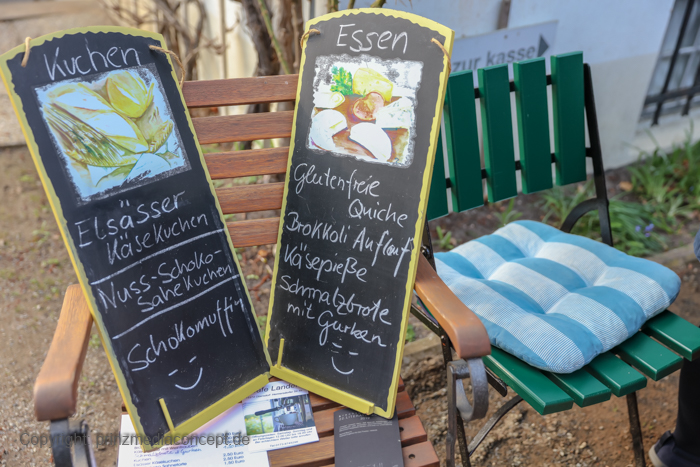 Kuchen
Elsässer
Käsekuchen
Nuss-Schoko-
Sahnekuchen
Schokomuffin
Essen
Glutenfreie
Quiche
Brokkoli Auflauf
Käsespieße
Schmalzbrote
mit Gurken
zur kasse